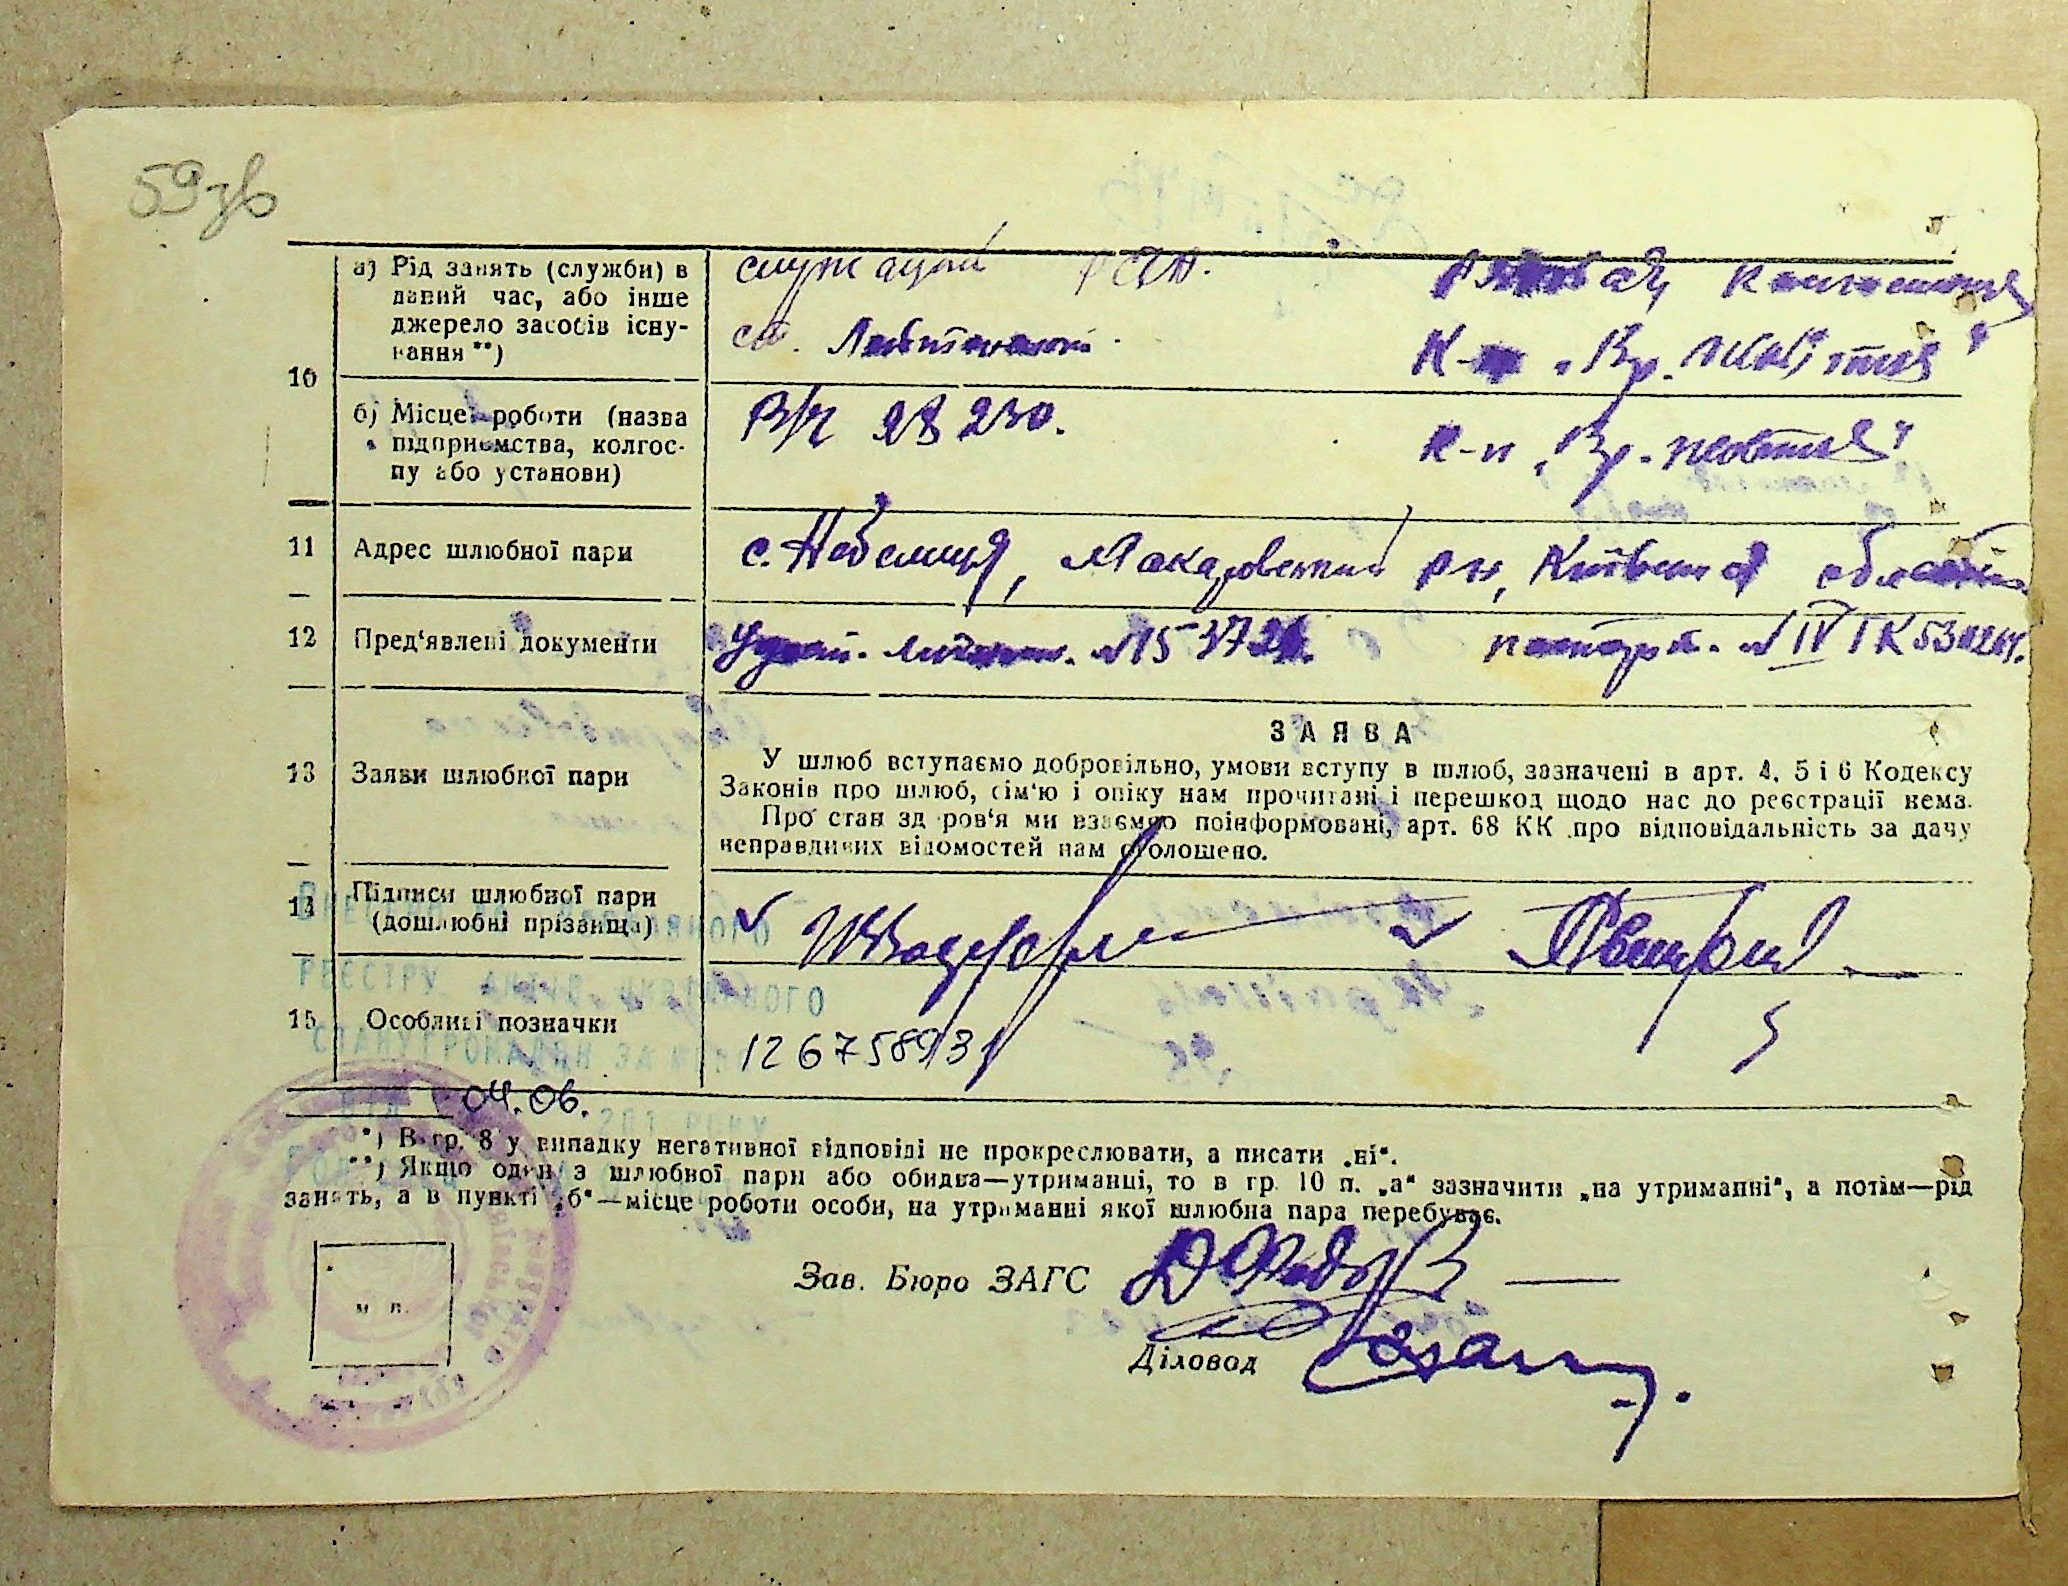 59зв
а) Рід занять (служби) в даний час, або інше джерело засобів існування **)
служащий РСА.
ст. Лейтенант.
К-п "Вр. Жовтня"
10
б) Місце роботи (назва підприємства, колгоспу або установи)
В/Ч 28230.
К-п "Вр. Жовтня"
11 Адрес шлюбної пари
с. Небелиця, Макаровский р-н, Київська області
12 Пред'явлені документи
паспорт. № IV ТК
З А Я В А
13 Заяви шлюбної пари
У шлюб вступаємо добровільно, умови вступу в шлюб, зазначені в арт. 4, 5 і 6 Кодексу
Законів про шлюб, сім'ю і опіку нам прочитані і перешкод щодо нас до реєстрації нема.
Про стан здоров'я ми взаємно поінформовані, арт. 68 КК про відповідальність за дачу
неправдивих відомостей нам оголошено.
14 Підписи шлюбної пари (дошлюбні прізвища)
РЕЄСТРУ АКТІВ ЦИВІЛЬНОГО
СТАНУ ГРОМАДЯН ЗА
15 Особливі позначки
126758931
04.06. 201 РОКУ
*) В гр. 8 у випадку негативної відповіді не прокреслювати, а писати „ні“.
**) Якщо один з шлюбної пари або обидва—утриманці, то в гр. 10 п. „а“ зазначити „на утриманні“, а потім—рід
занять, а в пункті „б“—місце роботи особи, на утриманні якої шлюбна пара перебуває.
Зав. Бюро ЗАГС
м п.
Діловод